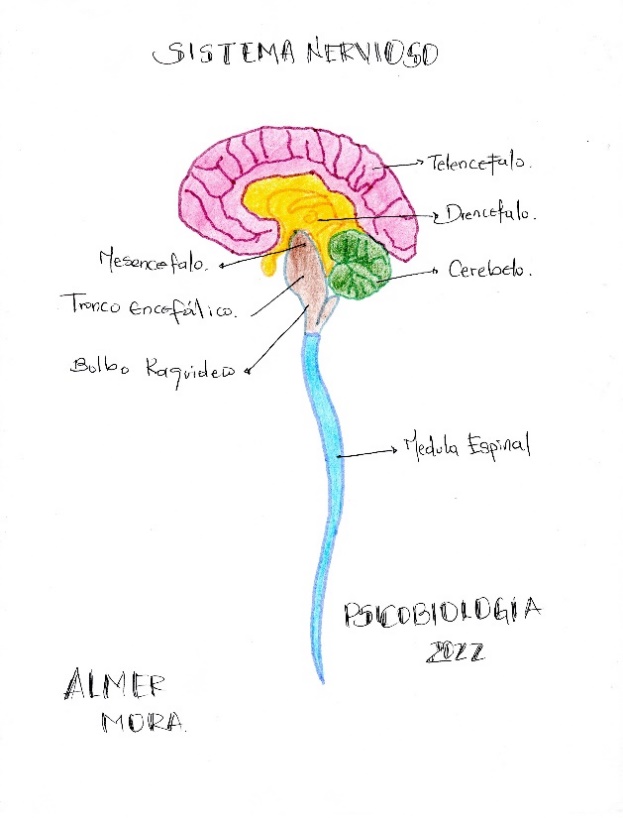 SISTEMA NERVIOSO
Telencefalo.
Diencefalo.
Mesencefalo.
Cerebelo.
Tronco Encefálico.
Bulbo Raquideo
Medula Espinal
PSICOBIOLOGIA
2022
ALMER
MORA.